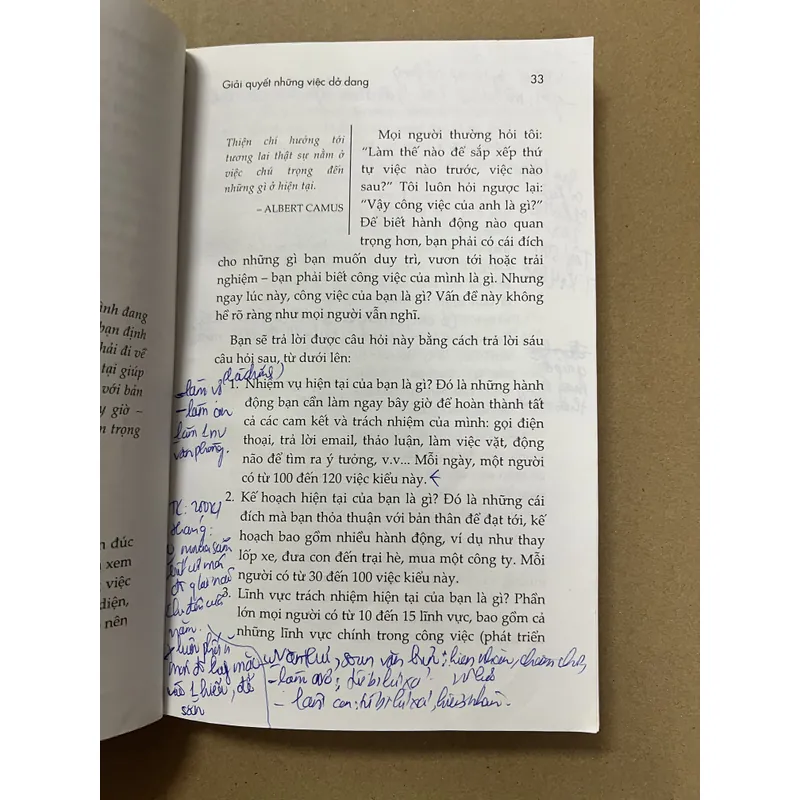 Giải quyết những việc dở dang
33
Thiện chí hướng tới
tương lai thật sự nằm ở
việc chú trọng đến
những gì ở hiện tại.
– ALBERT CAMUS
Mọi người thường hỏi tôi:
“Làm thế nào để sắp xếp thứ
tự việc nào trước, việc nào
sau?” Tôi luôn hỏi ngược lại:
“Vậy công việc của anh là gì?”
Để biết hành động nào quan
trọng hơn, bạn phải có cái đích
cho những gì bạn muốn duy trì, vươn tới hoặc trải
nghiệm – bạn phải biết công việc của mình là gì. Nhưng
ngay lúc này, công việc của bạn là gì? Vấn đề này không
hề rõ ràng như mọi người vẫn nghĩ.
Bạn sẽ trả lời được câu hỏi này bằng cách trả lời sáu
câu hỏi sau, từ dưới lên:
1. Nhiệm vụ hiện tại của bạn là gì? Đó là những hành
động bạn cần làm ngay bây giờ để hoàn thành tất
cả các cam kết và trách nhiệm của mình: gọi điện
thoại, trả lời email, thảo luận, làm việc vặt, động
não để tìm ra ý tưởng, v.v... Mỗi ngày, một người
có từ 100 đến 120 việc kiểu này.
2. Kế hoạch hiện tại của bạn là gì? Đó là những cái
đích mà bạn thỏa thuận với bản thân để đạt tới, kế
hoạch bao gồm nhiều hành động, ví dụ như thay
lốp xe, đưa con đến trại hè, mua một công ty. Mỗi
người có từ 30 đến 100 việc kiểu này.
3. Lĩnh vực trách nhiệm hiện tại của bạn là gì? Phần
lớn mọi người có từ 10 đến 15 lĩnh vực, bao gồm cả
những lĩnh vực chính trong công việc (phát triển
- làm
- làm con
làm 1 nv
văn phòng.
tháng:
năm.
- làm
- làm con:
ình đang
bạn định
hải đi về
tại giúp
với bản
y giờ –
n trọng
n đúc
xem
việc
diện,
nên